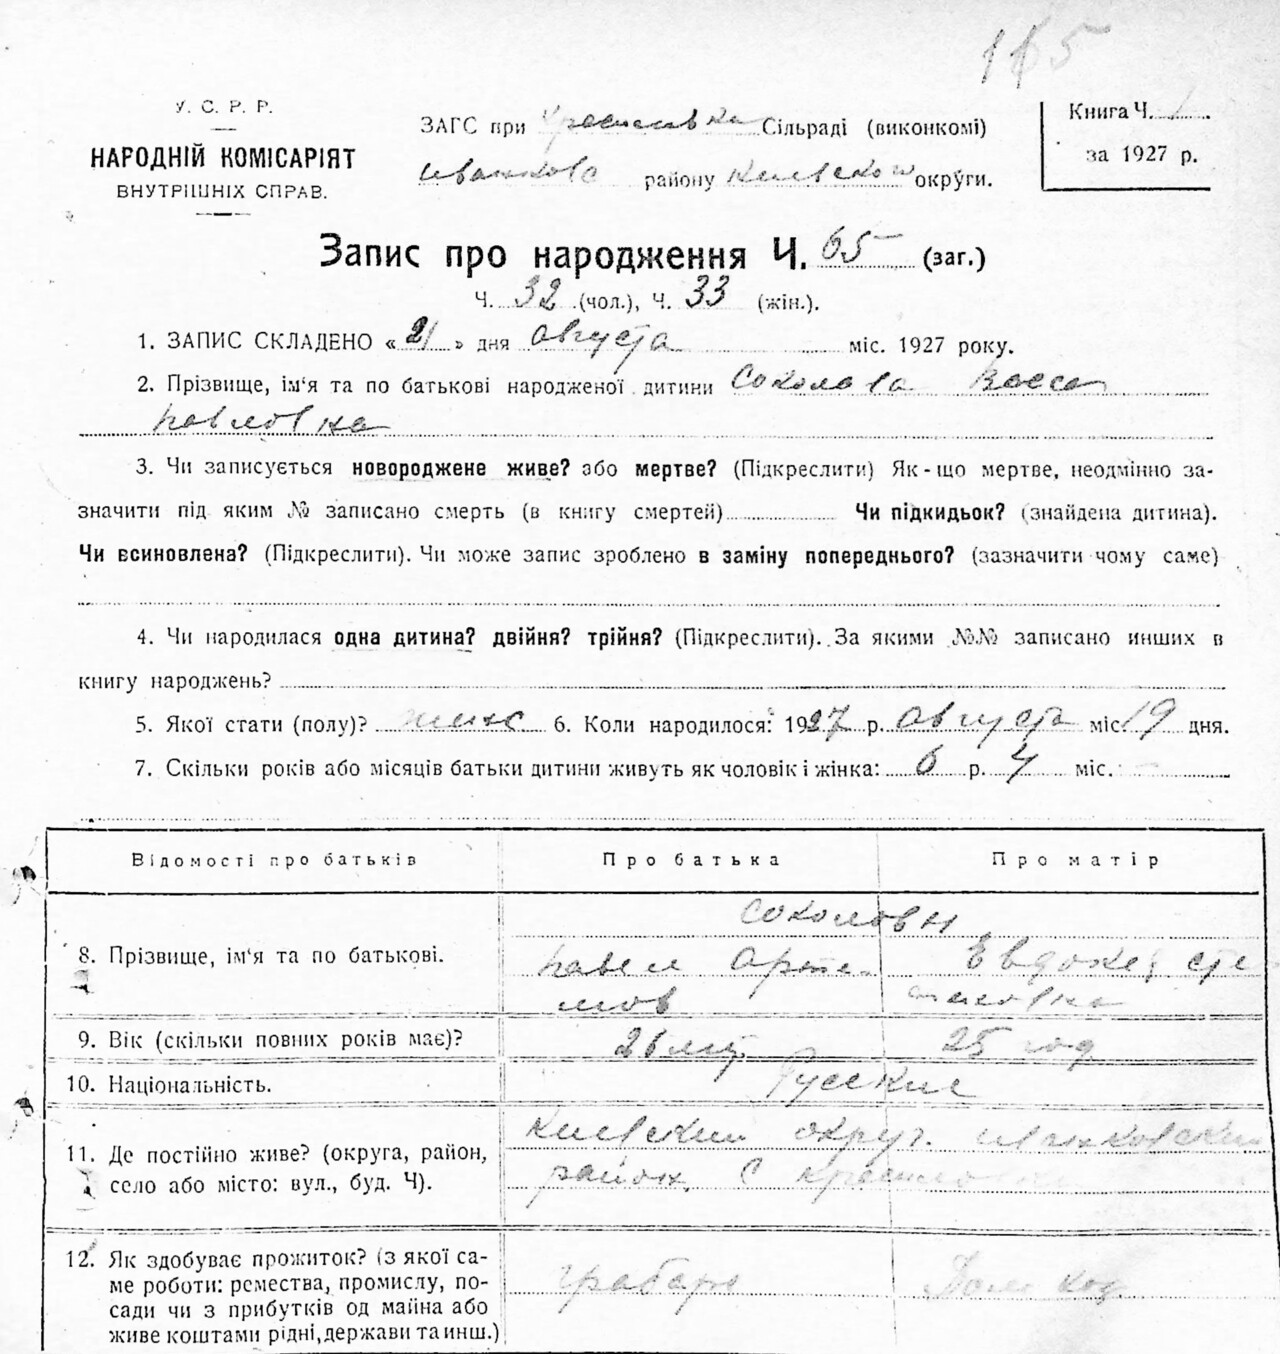 165
У. С. Р. Р.
НАРОДНІЙ КОМІСАРІЯТ
ВНУТРІШНІХ СПРАВ.
ЗАГС при Красиловка Сільраді (виконкомі)
Иванковс району Киевской округи.
Книга Ч. 1
за 1927 р.
Запис про народження Ч. 65 (заг.)
Ч. 32 (чол.), Ч. 33 (жін.).
1. ЗАПИС СКЛАДЕНО «21» дня Августа міс. 1927 року.
2. Прізвище, ім'я та по батькові народженої дитини Соколова Васса
Павловна
3. Чи записується новороджене живе? або мертве? (Підкреслити) Як-що мертве, неодмінно за-
значити під яким № записано смерть (в книгу смертей) Чи підкидьок? (знайдена дитина).
Чи всиновлена? (Підкреслити). Чи може запис зроблено в заміну попереднього? (зазначити чому саме)
4. Чи народилася одна дитина? двійня? трійня? (Підкреслити). За якими №№ записано инших в
книгу народжень?
5. Якої стати (полу)? женс 6. Коли народилося: 1927 р. Августа міс. 19 дня.
7. Скільки років або місяців батьки дитини живуть як чоловік і жінка: 6 р. 4 міс.
Відомості про батьків Про батька Про матір
Соколовы
8. Прізвище, ім'я та по батькові. Павел Арте- Евдокея Сте
мов
9. Вік (скільки повних років має)? 26 лет 25 год
10. Національність. Русские
11. Де постійно живе? (округа, район,
село або місто: вул., буд. Ч).
Киевский округ. Иванковский
район, С
12. Як здобуває прожиток? (з якої са-
ме роботи: ремества, промислу, по-
сади чи з прибутків од майна або
живе коштами рідні, держави та инш.)
грабарь Дом хоз